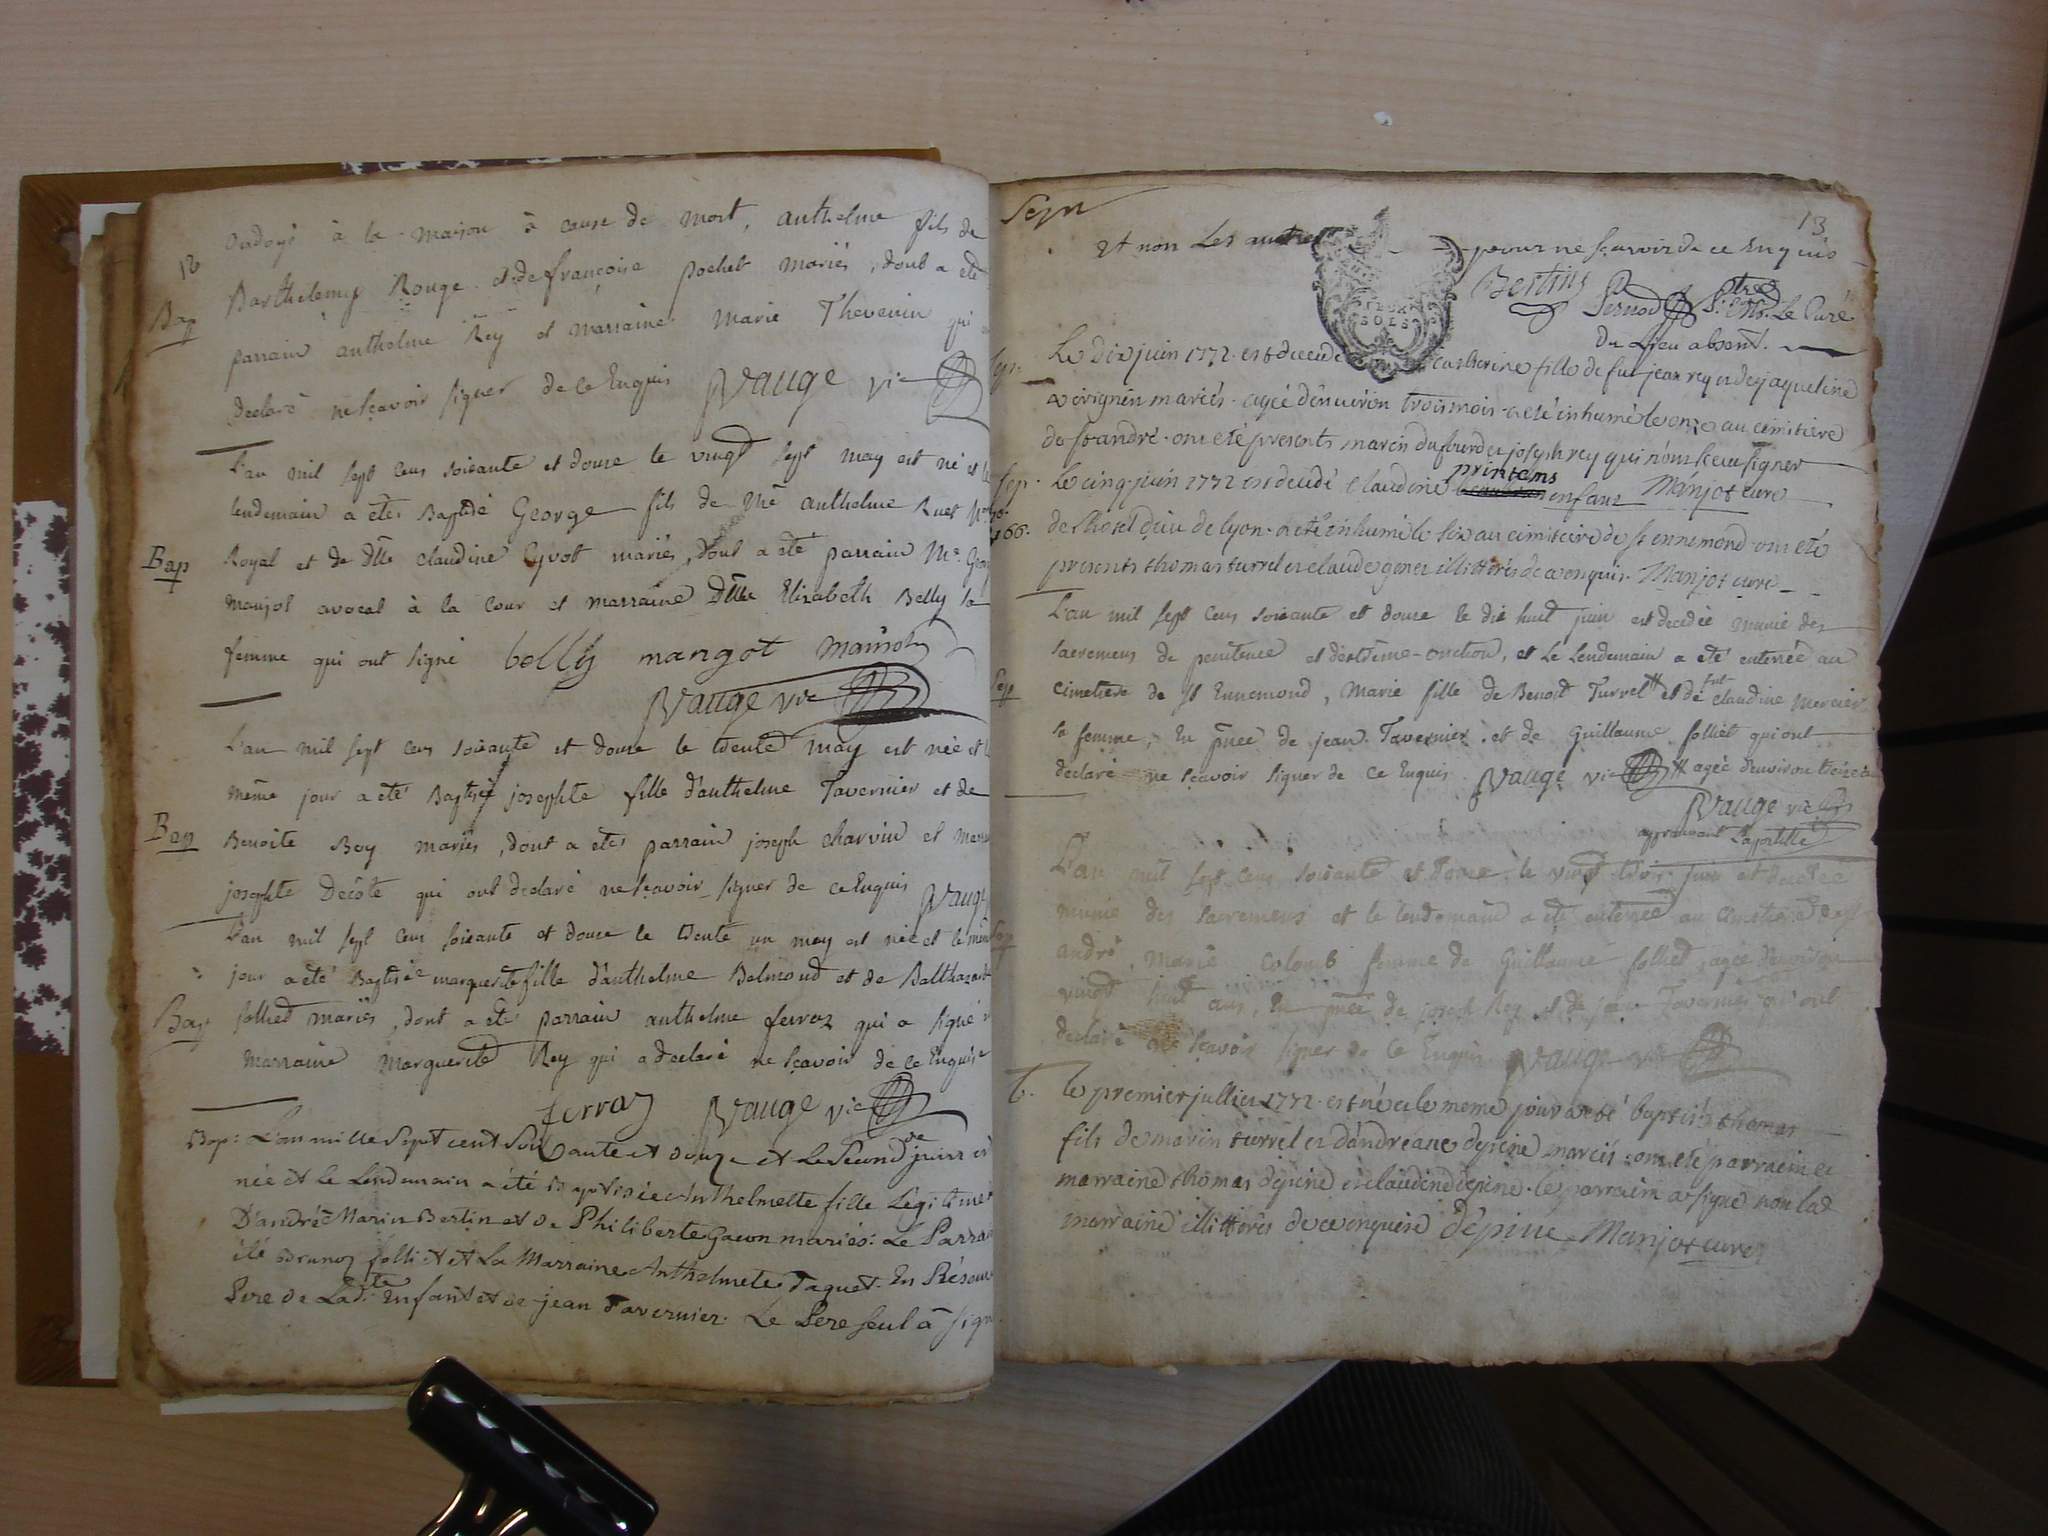 12
ondoyé à la maison à cause de mort, anthelme fils de
Bap
Barthelemy Rouge et de françoise pochet mariés, dont a eté
parrain anthelme Rey et marraine marie Thevenin qui
declaré ne sçavoir signer de ce Enquis Vauge vic
L'an mil sept cens soixante et douze le vingt sept may est né et le
lendemain a eté Baptisé George fils de me anthelme Ruet
Bap
Royal et de dlle claudine Eyvot mariés, dont a eté parrain Mr.
manjot avocat à la cour et marraine Dlle Elizabeth Belly sa
femme qui ont signé belly mangot
Vauge vic
L'an mil sept cens soixante et douze le trente may est née et le
même jour a eté Baptisée josephte fille d'anthelme Tavernier et de
Bap
Benoite Boy mariés, dont a eté parrain joseph charvin et
josephte Decôte qui ont declaré ne sçavoir signer de ce Enquis Vauge
L'an mil sept cens soixante et douze le trente un may est née et le même
jour a eté Baptisée marguerite fille d'anthelme Belmond et de Balthazarde
Bap
folliet mariés, dont a eté parrain anthelme ferraz qui a signé
marraine Marguerite Rey qui a declaré ne sçavoir de ce Enquise
ferraz Vauge vic
Bap: L'an mille Sept cent Soixante et douze et Le Second de juin
née et le Lendemain a été Baptisée Anthelmette fille Légitime
D'andré Marin Bertin et de Philiberte Gacon mariés: Le Parrain
été Brunoz folliet et La Marraine Anthelmete Paquet. En Présence
Pere de Lad.te Enfant et de jean Tavernier. Le Pere seul à signé
Sepu
13
et non Les autres pour ne sçavoir de ce Enquis
DEUX SOLS
Bertin Pernod Le Curé
du Lieu absent.
Sep.
Le dix juin 1772 est decedé catherine fille de fut jean rey et de jaqueline
mariés. agée d'environ trois mois a eté inhumé le onze au cimitiere
de st andré. ont eté presents marin dufour et joseph rey qui n'ont sceu signer
Sep.
Le cinq juin 1772 est decedé claudine printems enfant Manjot curé
66.
de l'hotel dieu de lyon. a eté inhumé le six au cimitiere de st ennemond ont eté
presents thomas turrel et claude gener illitterés de ce enquis. Manjot curé
L'an mil sept cens soixante et douze le dix huit juin est decedée munie des
sacremens de penitence et d'extrême-onction, et Le Lendemain a eté enterrée au
Sep
cimetiere de st Ennemond, Marie fille de Benoit Turrel et de fut claudine mercier
sa femme, En pñce de jean Tavernier et de Guillaume folliet qui ont
declaré ne sçavoir signer de ce Enquis Vauge vic agée d'environ treize
Vauge vic
approuvant L'apostille
L'an mil sept cens soixante et douze le vingt trois juin est decedée
munie des sacremens et le lendemain a eté enterrée au cimetiere de st
Sep
andré, Marie Colomb femme de Guillaume folliet, agée d'environ
vingt huit ans, En pñce de joseph Rey et de jean Tavernier qui ont
declaré ne sçavoir signer de ce Enquis Vauge vic
b.
le premier jullier 1772 est né et le meme jour a eté baptisé thomas
fils de marin turrel et d'andreane depine mariés: ont eté parrain et
marraine thomas depine et claudine depine. le parrain a signé non lad
marraine illitterés de ce enquise dépine Manjot curé